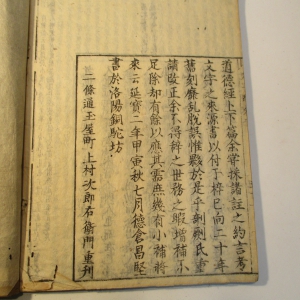 道德經上下篇余嘗採諸註之約言考
文字之來源書以付于梓已向二十年
舊刻麻乱脫誤惟夥於是乎劂氏重
請改正余不得稗之世務之暇增補不
足除却有餘以應其需無幾有小補蔣
來云延寶二年甲寅秋七月德倉昌堅
書於洛陽銅駝坊
二條通玉屋町上村次郎右衛門重刊